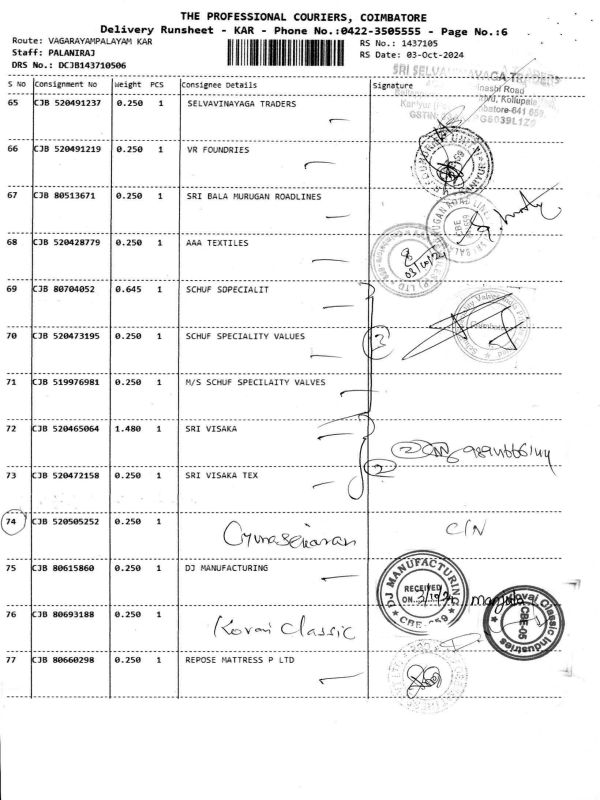 THE PROFESSIONAL COURIERS, COIMBATORE
Delivery Runsheet - KAR - Phone No.:0422-3505555 - Page No.:6
Route: VAGARAYAMPALAYAM KAR
RS No.: 1437105
Staff: PALANIRAJ
RS Date: 03-Oct-2024
DRS No.: DCJB143710506
S No Consignment No Weight PCS Consignee Details Signature
65 CJB 520491237 0.250 1 SELVAVINAYAGA TRADERS
66 CJB 520491219 0.250 1 VR FOUNDRIES
67 CJB 80513671 0.250 1 SRI BALA MURUGAN ROADLINES
68 CJB 520428779 0.250 1 AAA TEXTILES
03/10/24
69 CJB 80704052 0.645 1 SCHUF SDPECIALIT
70 CJB 520473195 0.250 1 SCHUF SPECIALITY VALUES
3
71 CJB 519976981 0.250 1 M/S SCHUF SPECILAITY VALVES
72 CJB 520465064 1.480 1 SRI VISAKA
2
73 CJB 520472158 0.250 1 SRI VISAKA TEX
2
74 CJB 520505252 0.250 1
C/N
75 CJB 80615860 0.250 1 DJ MANUFACTURING
DJ MANUFACTURING
RECEIVED
ON
CBE - 659
76 CJB 80693188 0.250 1 Kovai Classic
Kovai Classic Industries
CBE-05
77 CJB 80660298 0.250 1 REPOSE MATTRESS P LTD